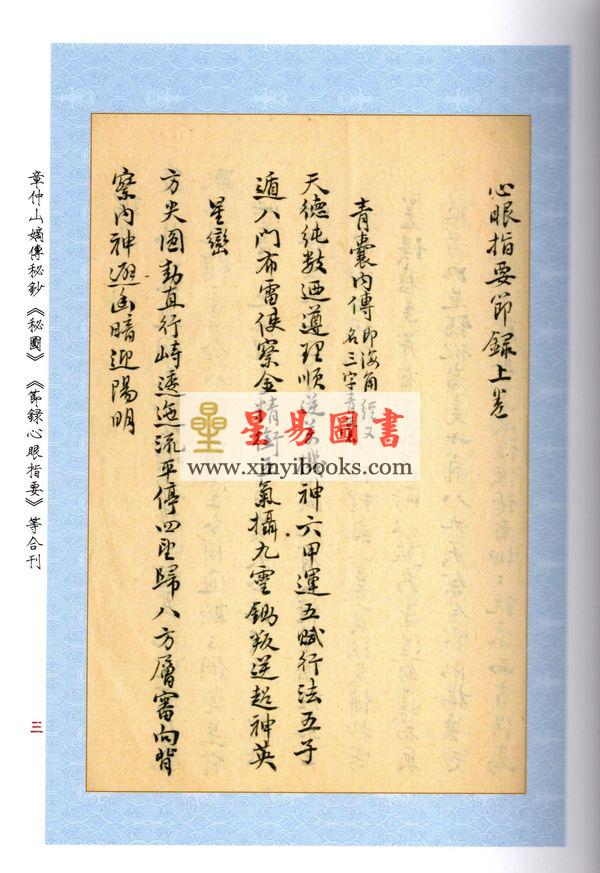 心眼指要節錄上卷
青囊內傳即海角經又
名三字青
天德純數迺遵理順逆 神六甲運五賦行法五子
遁八門布雷使察金精衡五氣攝九靈 叛逆超神英
星巒
方尖圓動直行峙逶迤流平停四 歸八方層審向背
察內神避幽暗迎陽明
星易圖書
www.xinyibooks.com
章仲山嫡傳秘鈔《秘圖》《節錄心眼指要》等合刊
三